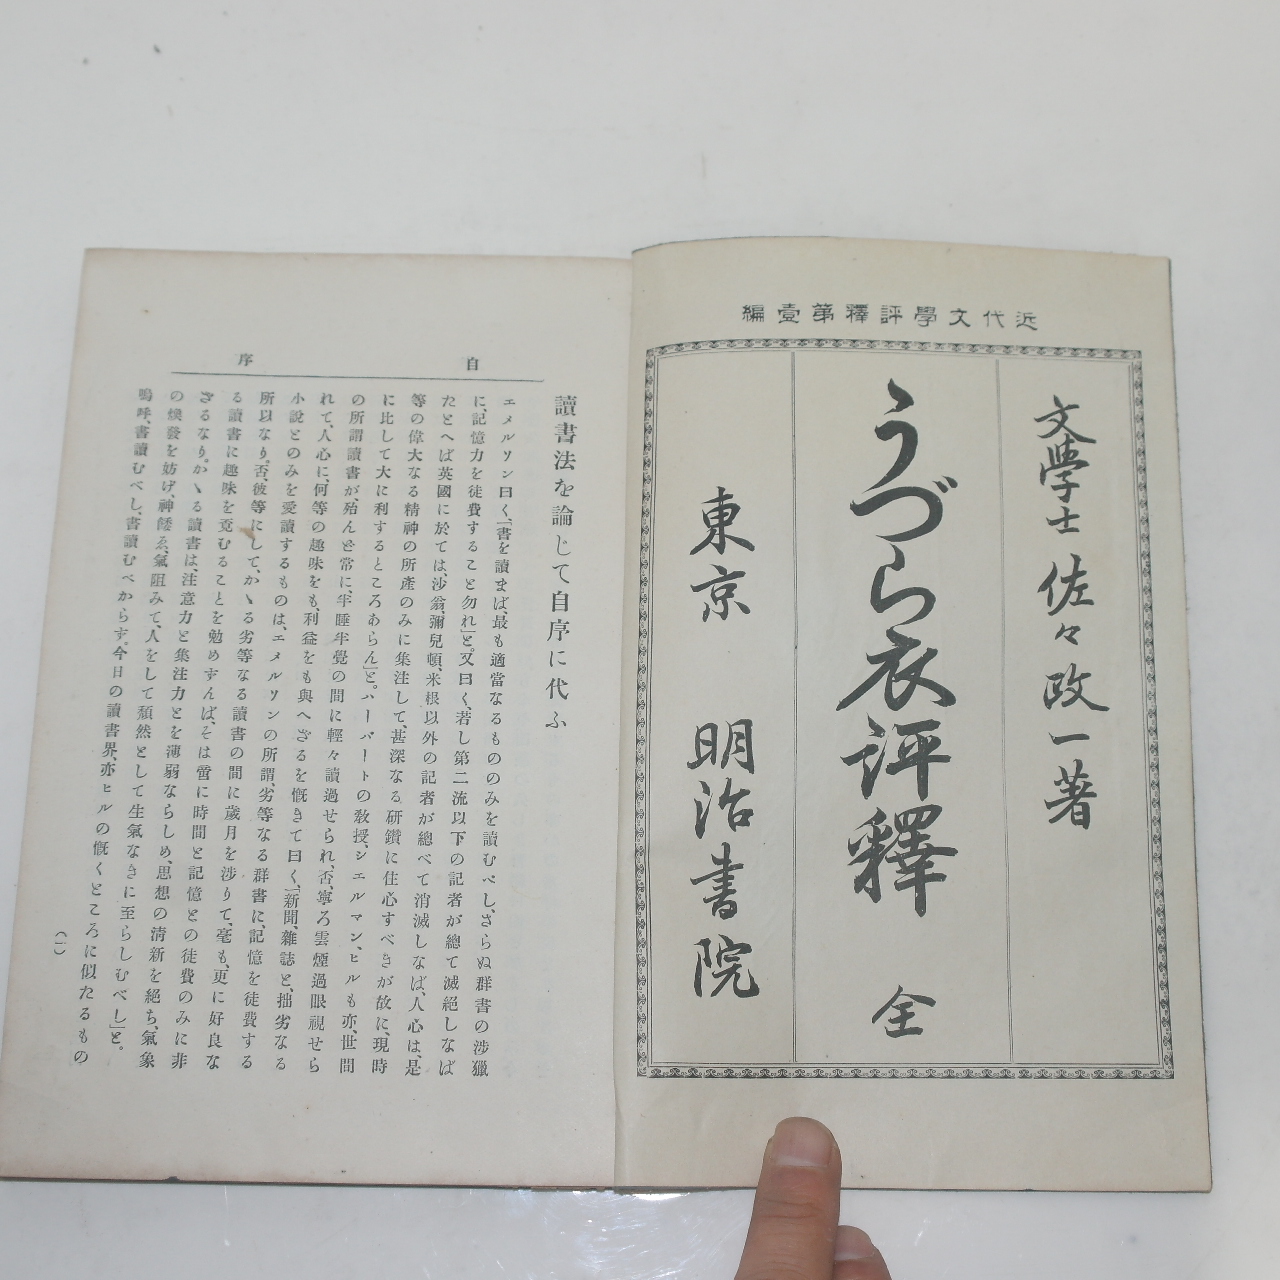 近代文學評釋第壹編
文學士 佐々政一著
うづら衣評釋 全
東京 明治書院
自序
讀書法を論じて自序に代ふ
エメルソン曰く、「書を讀まば、最も適當なるもののみを讀むべし、さらぬ群書の涉獵
に、記憶力を徒費すること勿れ」と。又曰く、「若し第二流以下の記者が總て滅絕しなば
たとへば英國に於ては、沙翁、彌兒頓、米根以外の記者が總べて消滅しなば、人心は、是
等の偉大なる精神の所產のみに集注して、甚深なる研鑽に住心すべきが故に、現時
に比して大に利するところあらん」と。ハーバートの敎授、シエルマン、ヒルも亦、世間
の所謂讀書が、殆んど常に、半睡半覺の間に輕々讀過せられ、否、寧ろ雲煙過眼視せら
れて、人心に、何等の趣味をも、利益をも與へざるを慨きて曰く、「新聞、雜誌と、拙劣なる
小說とのみを愛讀するものは、エメルソンの所謂、劣等なる群書に、記憶を徒費する
所以なり。否、彼等にして、かゝる劣等なる讀書の間に歲月を涉りて、毫も、更に好良な
る讀書に趣味を覓むることを勉めずんば、そは啻に時間と記憶との徒費のみに非
ざるなり。かゝる讀書は、注意力と集注力とを薄弱ならしめ、思想の淸新を絕ち、氣象
の煥發を妨げ、神餒ゑ、氣阻みて、人をして頹然として生氣なきに至らしむべし」と。
嗚呼、書讀むべし、書讀むべからず。今日の讀書界、亦ヒルの慨くところに似たるもの
(一)